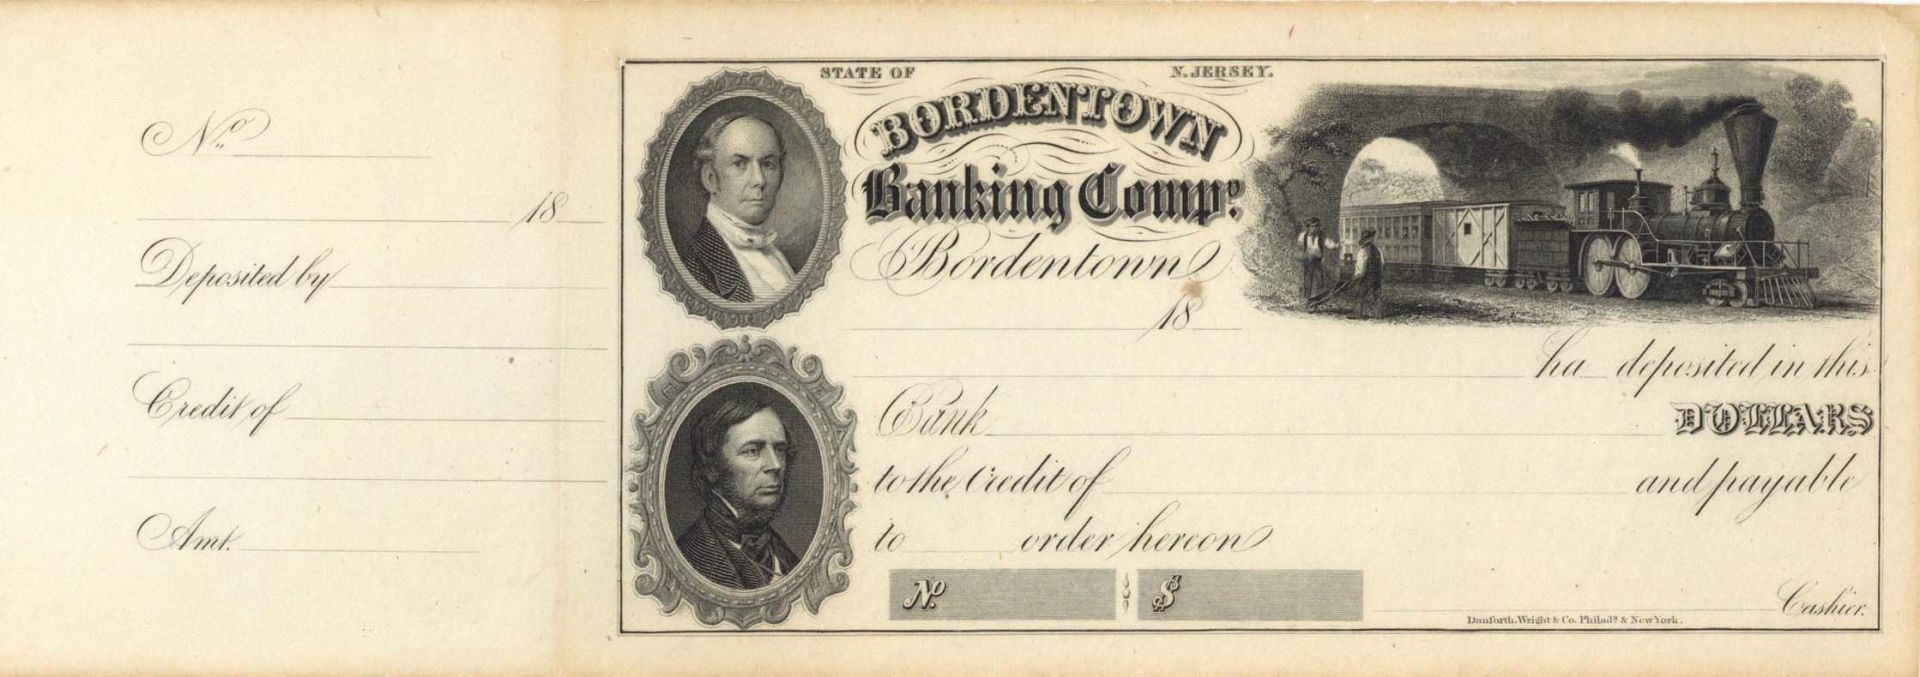 No.
18
Deposited by
Credit of
Amt.
STATE OF N. JERSEY.
BORDENTOWN
Banking Compy.
Bordentown
18
ha deposited in this
Bank DOLLARS
to the Credit of and payable
to order hereon
No. $
Cashier.
Danforth, Wright & Co. Philada. & New York.